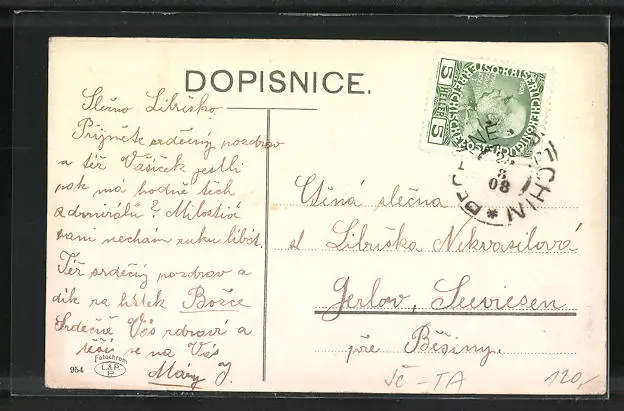 DOPISNICE.
Slečno Libuško
Přijměte srdečný pozdrav
a též Vášíček jestli
pak má hodně těch
admirálů? Milostivá
paní nechám ruku líbat.
Též srdečný pozdrav a
dík za lístek Božce
Srdečně Vás zdraví a
těší se na Vás
Mány J.
954
Fotochrom
L&P
P
5 HELLER 5
BECHIN
25
8
08
Ctěná slečna
sl Libuška Nekvasilová
Gerlov, Seeviesen
pře Běšiny.
JČ-TA
120,-